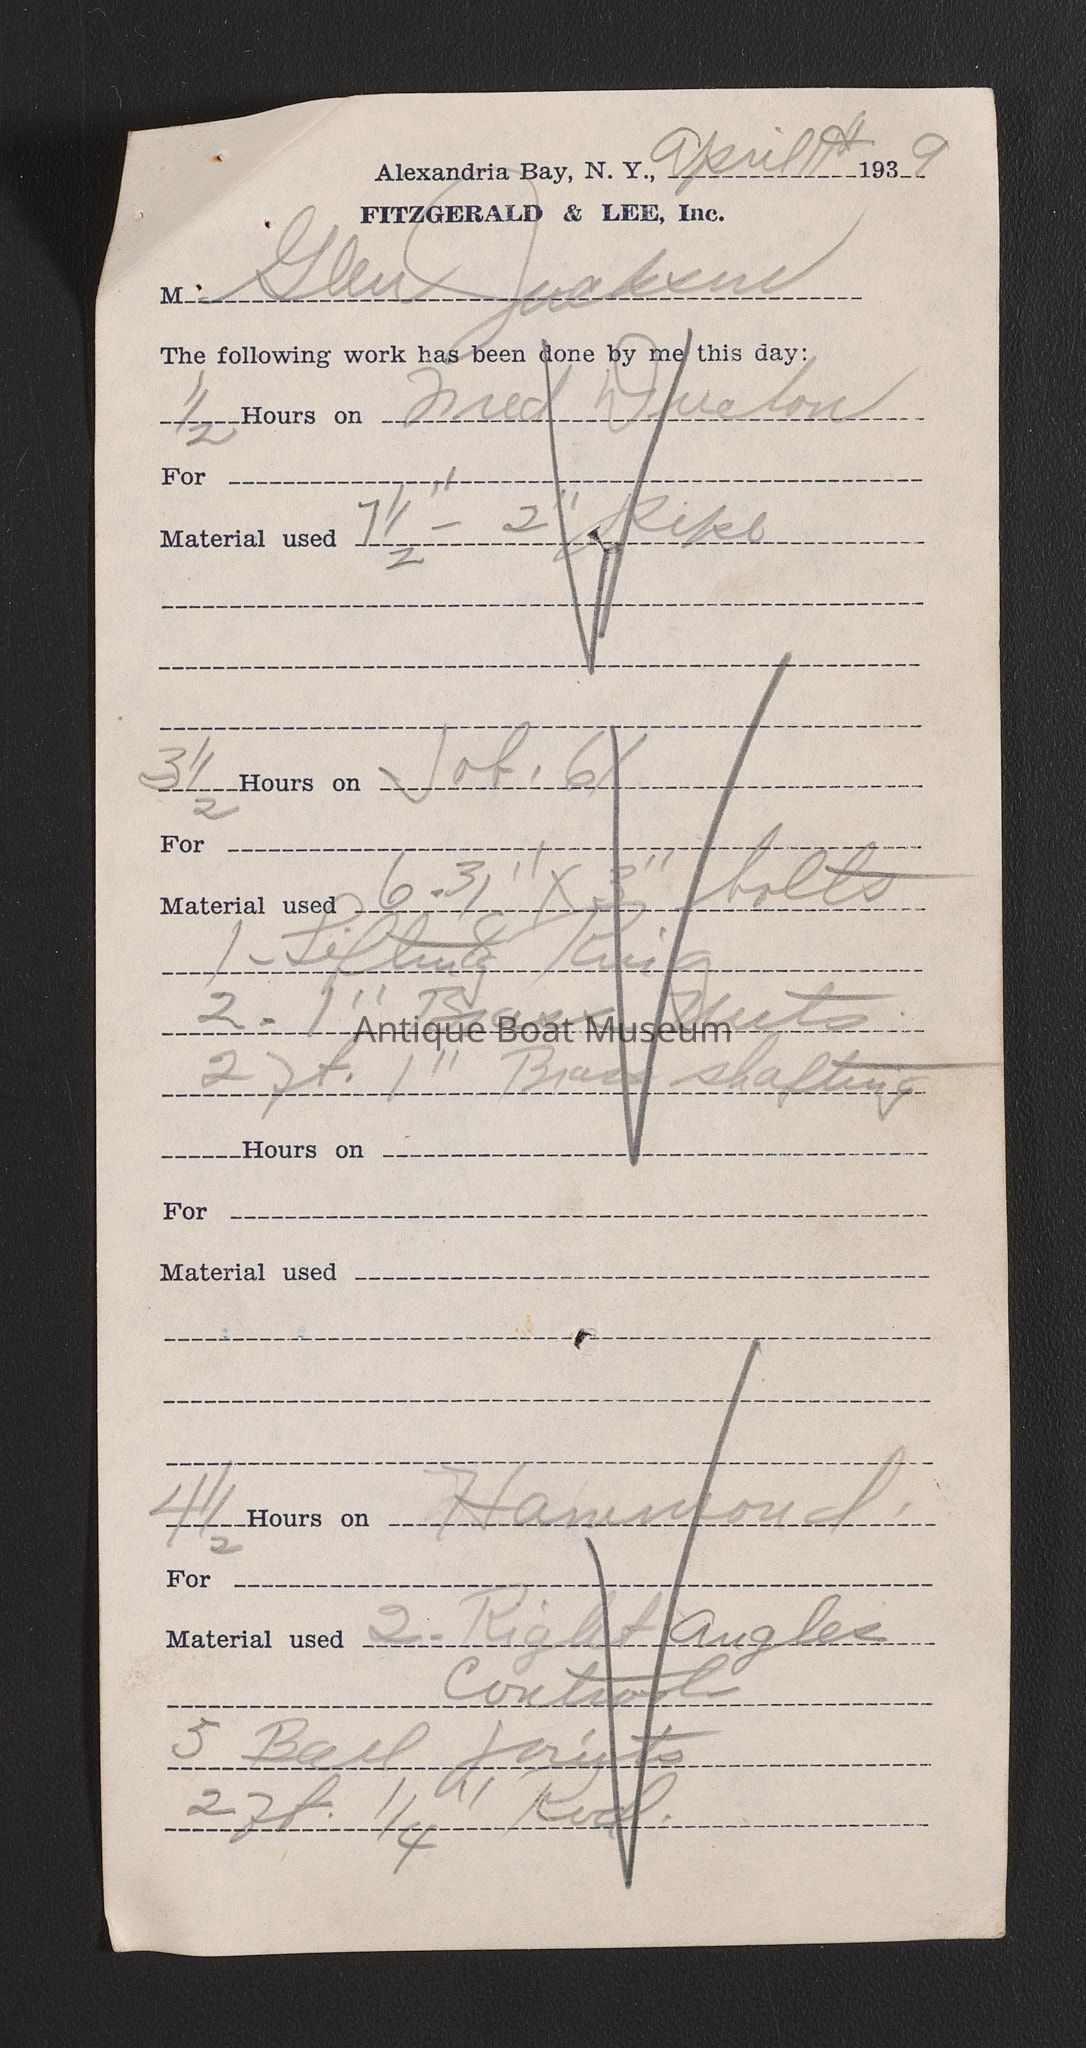 Alexandria Bay, N. Y., April 1939
FITZGERALD & LEE, Inc.
M Glen Jackson
The following work has been done by me this day:
1/2 Hours on Fred
For
Material used 7 1/2" - 2" Pipe
3 1/2 Hours on Job. 61
For
Material used 6 - 3/8" X 3" bolts
1 - Lifting Ring
2 - 1" Brass Nuts
Antique Boat Museum
2 ft. 1" Brass shafting
Hours on
For
Material used
4 1/2 Hours on Hammond.
For
Material used 2 - Right Angles
Control
5 Ball joints
2 ft. 1/4" Rod.